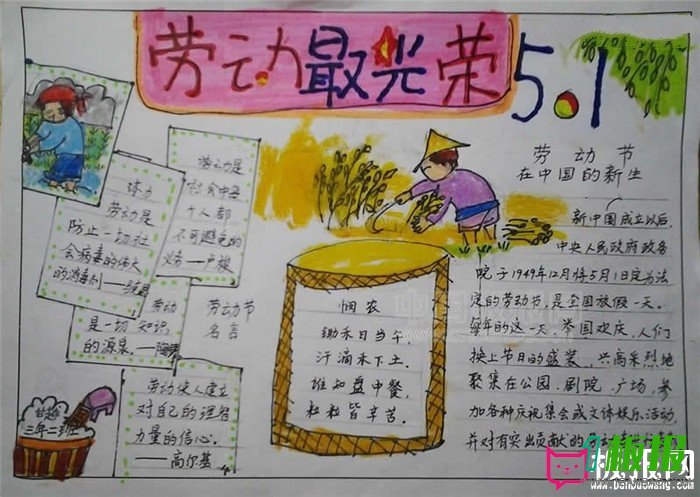 劳动最光荣
5.1
体力
劳动是
防止一切社
会病毒的伟大
的消毒剂——
劳动是
社会中每
个人都
不可避免的
义务—卢梭
劳动
是一切知识
的源泉。——
劳动节
名言
劳动使人建立
对自己的理智
力量的信心。
——高尔基
三年二班
悯农
锄禾日当午,
汗滴禾下土。
谁知盘中餐,
粒粒皆辛苦。
劳动节
在中国的新生
新中国成立以后,
中央人民政府政务
院于1949年12月将5月1日定为法
定的劳动节,是全国放假一天。
每年的这一天,举国欢庆,人们
换上节日的盛装,兴高采烈地
聚集在公园、剧院、广场,参
加各种庆祝集会或文体娱乐活动,
并对有突出贡献的
板报网
www.banbaowang.com